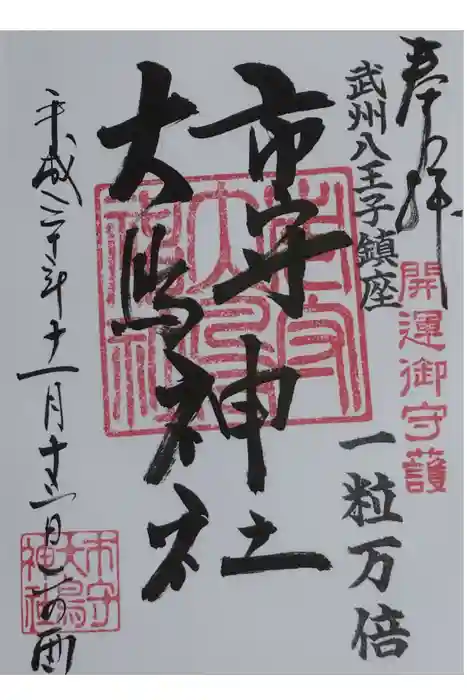 奉拝
武州八王子鎮座
開運御守護
一粒万倍
市守神社
大鳥神社
市守
大鳥
神社
平成三十年十一月十三日二の酉
市守
大鳥
神社